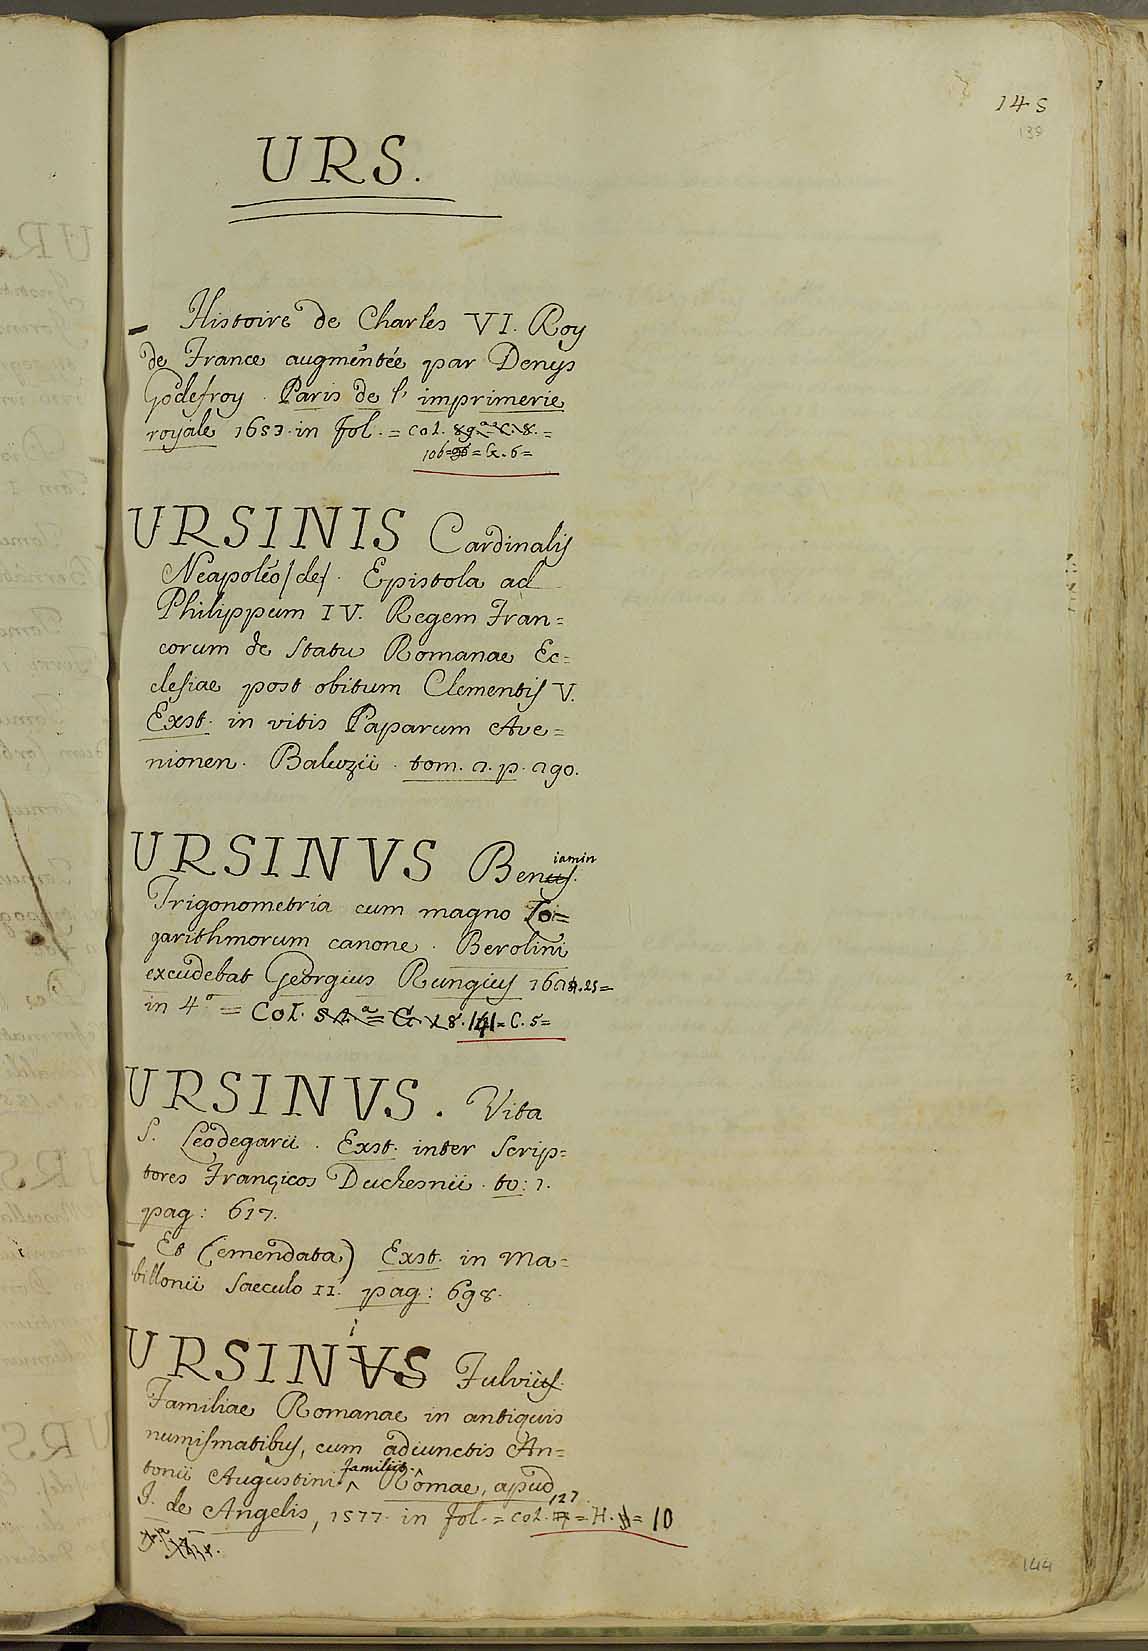 145
139
URS.
Histoire de Charles VI. Roy
de France augmentée par Denys
Godefroy. Paris de l'imprimerie
royale 1653. in Fol. = Col.
106 = = G. 6 =
URSINIS Cardinalis
Neapoleo/de/. Epistola ad
Philippum IV. Regem Fran=
corum de statu Romanae Ec=
clesiae post obitum Clementis V.
Exst. in vitis Paparum Ave=
nionen. Baluzii. tom. 2. p. 290.
URSINVS Beniamin
Trigonometria cum magno Lo=
garithmorum canone. Berolini
excudebat Georgius Rungius 162 .25=
in 4° = Col. 141 = C. 5 =
URSINVS. Vita
S. Leodegarii. Exst. inter Scrip=
tores Françicos Duchesnii. to: 1.
pag: 617.
Et (emendata) Exst. in Ma=
billonii Saeculo II. pag: 698.
URSINi Fulvii
Familiae Romanae in antiquis
numismatibus, cum adiunctis An=
tonii Augustini familiis. Romae, apud
J. de Angelis, 1577. in Fol. = Col. 127 = H. = 10
144